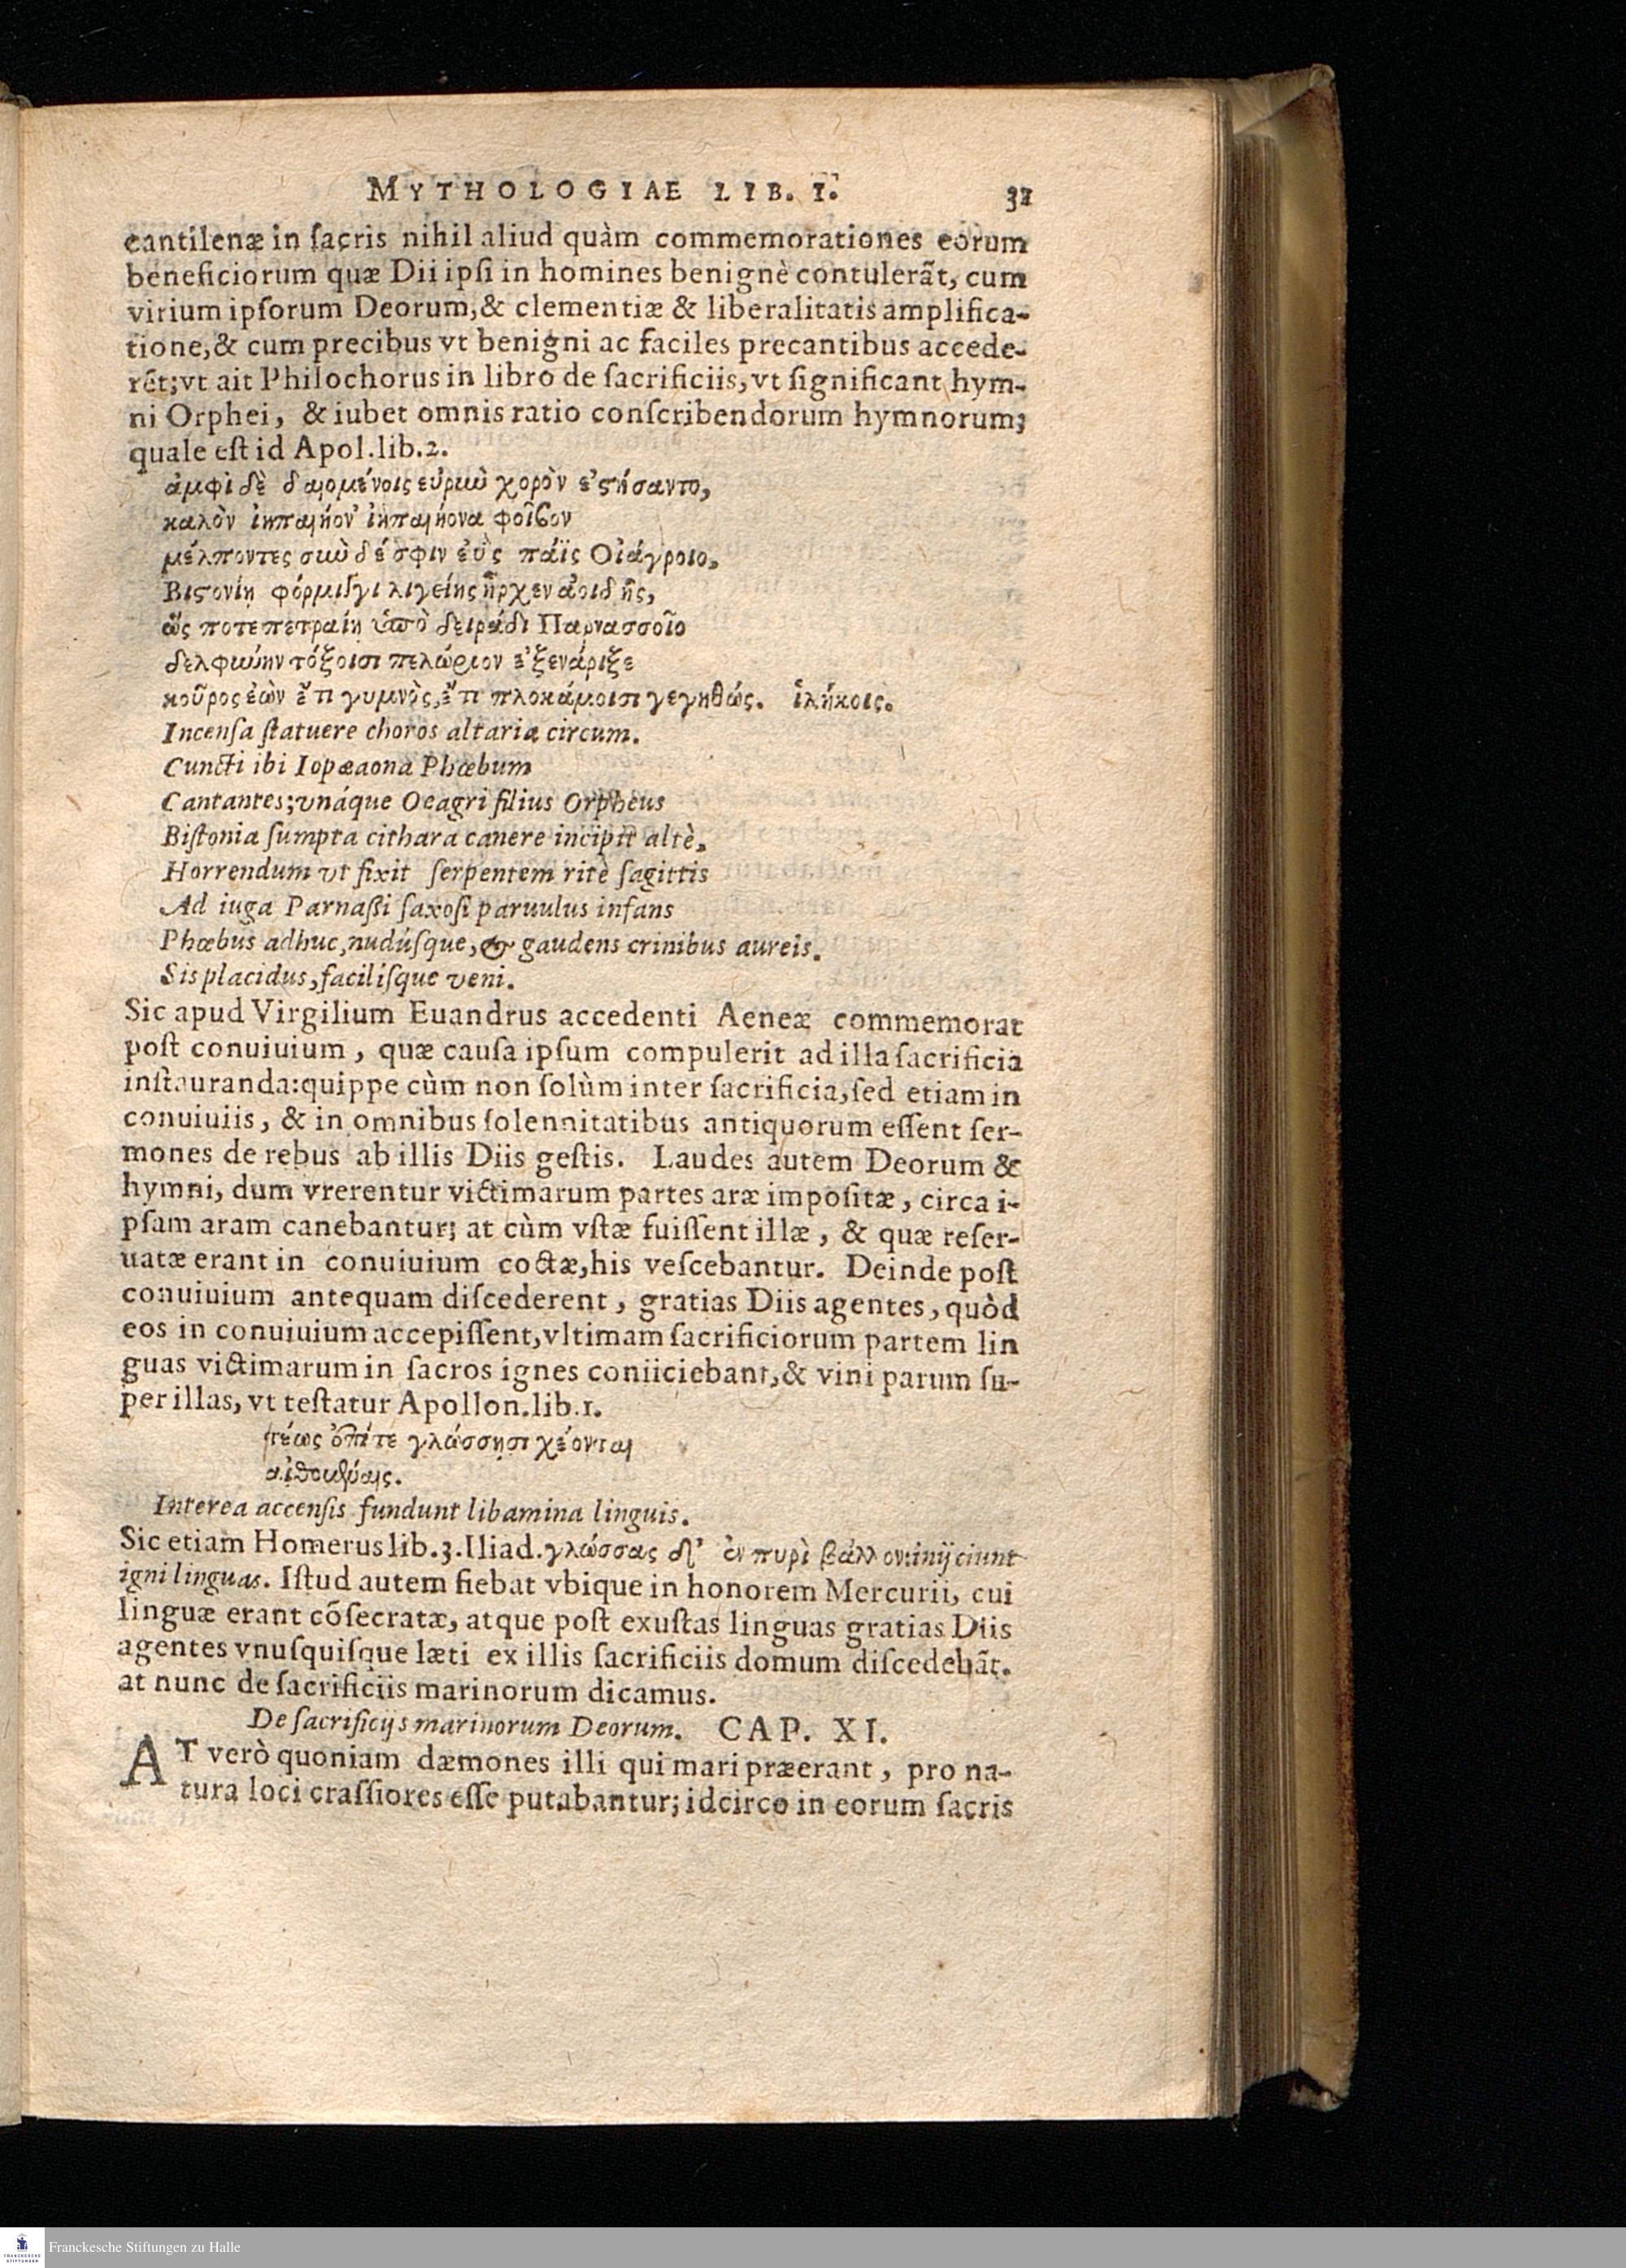 MYTHOLOGIAE LIB. I. 31
cantilenæ in ſacris nihil aliud quàm commemorationes eorum
beneficiorum quæ Dii ipſi in homines benignè contulerãt, cum
virium ipſorum Deorum,& clementiæ & liberalitatis amplifica-
tione,& cum precibus vt benigni ac faciles precantibus accede-
rẽt;vt ait Philochorus in libro de ſacrificiis, vt ſignificant hym-
ni Orphei, & iubet omnis ratio conſcribendorum hymnorum;
quale eſt id Apol.lib.2.
ἀμφὶ δὲ δαιομένοις εὐρωὺ χορὸν ἐϛήσαντο,
καλὸν ἰηπαιήον' ἰηπαιήονα φοῖβον
μέλποντες σωὺ δέ σφιν ἐῢς πάϊς Οἰάγροιο,
Βιϛονίῃ φόρμιγγι λιγείης ἦρχεν ἀοιδῆς,
ὥς ποτε πετραίῃ ὑπὸ δειράδι Παρνασσοῖο
δελφωύην τόξοισι πελώριον ἐξενάριξε
κοῦρος ἐὼν ἔτι γυμνὸς, ἔτι πλοκάμοισι γεγηθώς. ἱλήκοις.
Incenſa ſtatuere choros altaria circum.
Cuncti ibi Iopæaona Phœbum
Cantantes;vnáque Oeagri filius Orpheus
Biſtonia ſumpta cithara canere incipit altè,
Horrendum vt fixit ſerpentem ritè ſagittis
Ad iuga Parnaſſi ſaxoſi paruulus infans
Phœbus adhuc,nudúſque,& gaudens crinibus aureis.
Sis placidus,faciliſque veni.
Sic apud Virgilium Euandrus accedenti Aeneæ commemorat
poſt conuiuium, quæ cauſa ipſum compulerit ad illa ſacrificia
inſtauranda:quippe cùm non ſolùm inter ſacrificia,ſed etiam in
conuiuiis, & in omnibus ſolennitatibus antiquorum eſſent ſer-
mones de rebus ab illis Diis geſtis. Laudes autem Deorum &
hymni, dum vrerentur victimarum partes aræ impoſitæ, circa i-
pſam aram canebantur; at cùm vſtæ fuiſſent illæ, & quæ reſer-
uatæ erant in conuiuium coctæ,his veſcebantur. Deinde poſt
conuiuium antequam diſcederent, gratias Diis agentes, quòd
eos in conuiuium accepiſſent,vltimam ſacrificiorum partem lin
guas victimarum in ſacros ignes coniiciebant,& vini parum ſu-
per illas, vt teſtatur Apollon.lib.1.
τέως ὀπίτε γλώσσῃσι χέονται
Interea accenſis fundunt libamina linguis.
Sic etiam Homerus lib.3.Iliad.γλώσσας δ' ἐν πυρὶ βάλλον:inijciunt
igni linguas. Iſtud autem fiebat vbique in honorem Mercurii, cui
linguæ erant cõſecratæ, atque poſt exuſtas linguas gratias Diis
agentes vnuſquiſque læti ex illis ſacrificiis domum diſcedebãt.
at nunc de ſacrificiis marinorum dicamus.
De ſacrificijs marinorum Deorum. CAP. XI.
AT verò quoniam dæmones illi qui mari præerant, pro na-
tura loci craſſiores eſſe putabantur; idcirco in eorum ſacris
Franckesche Stiftungen zu Halle